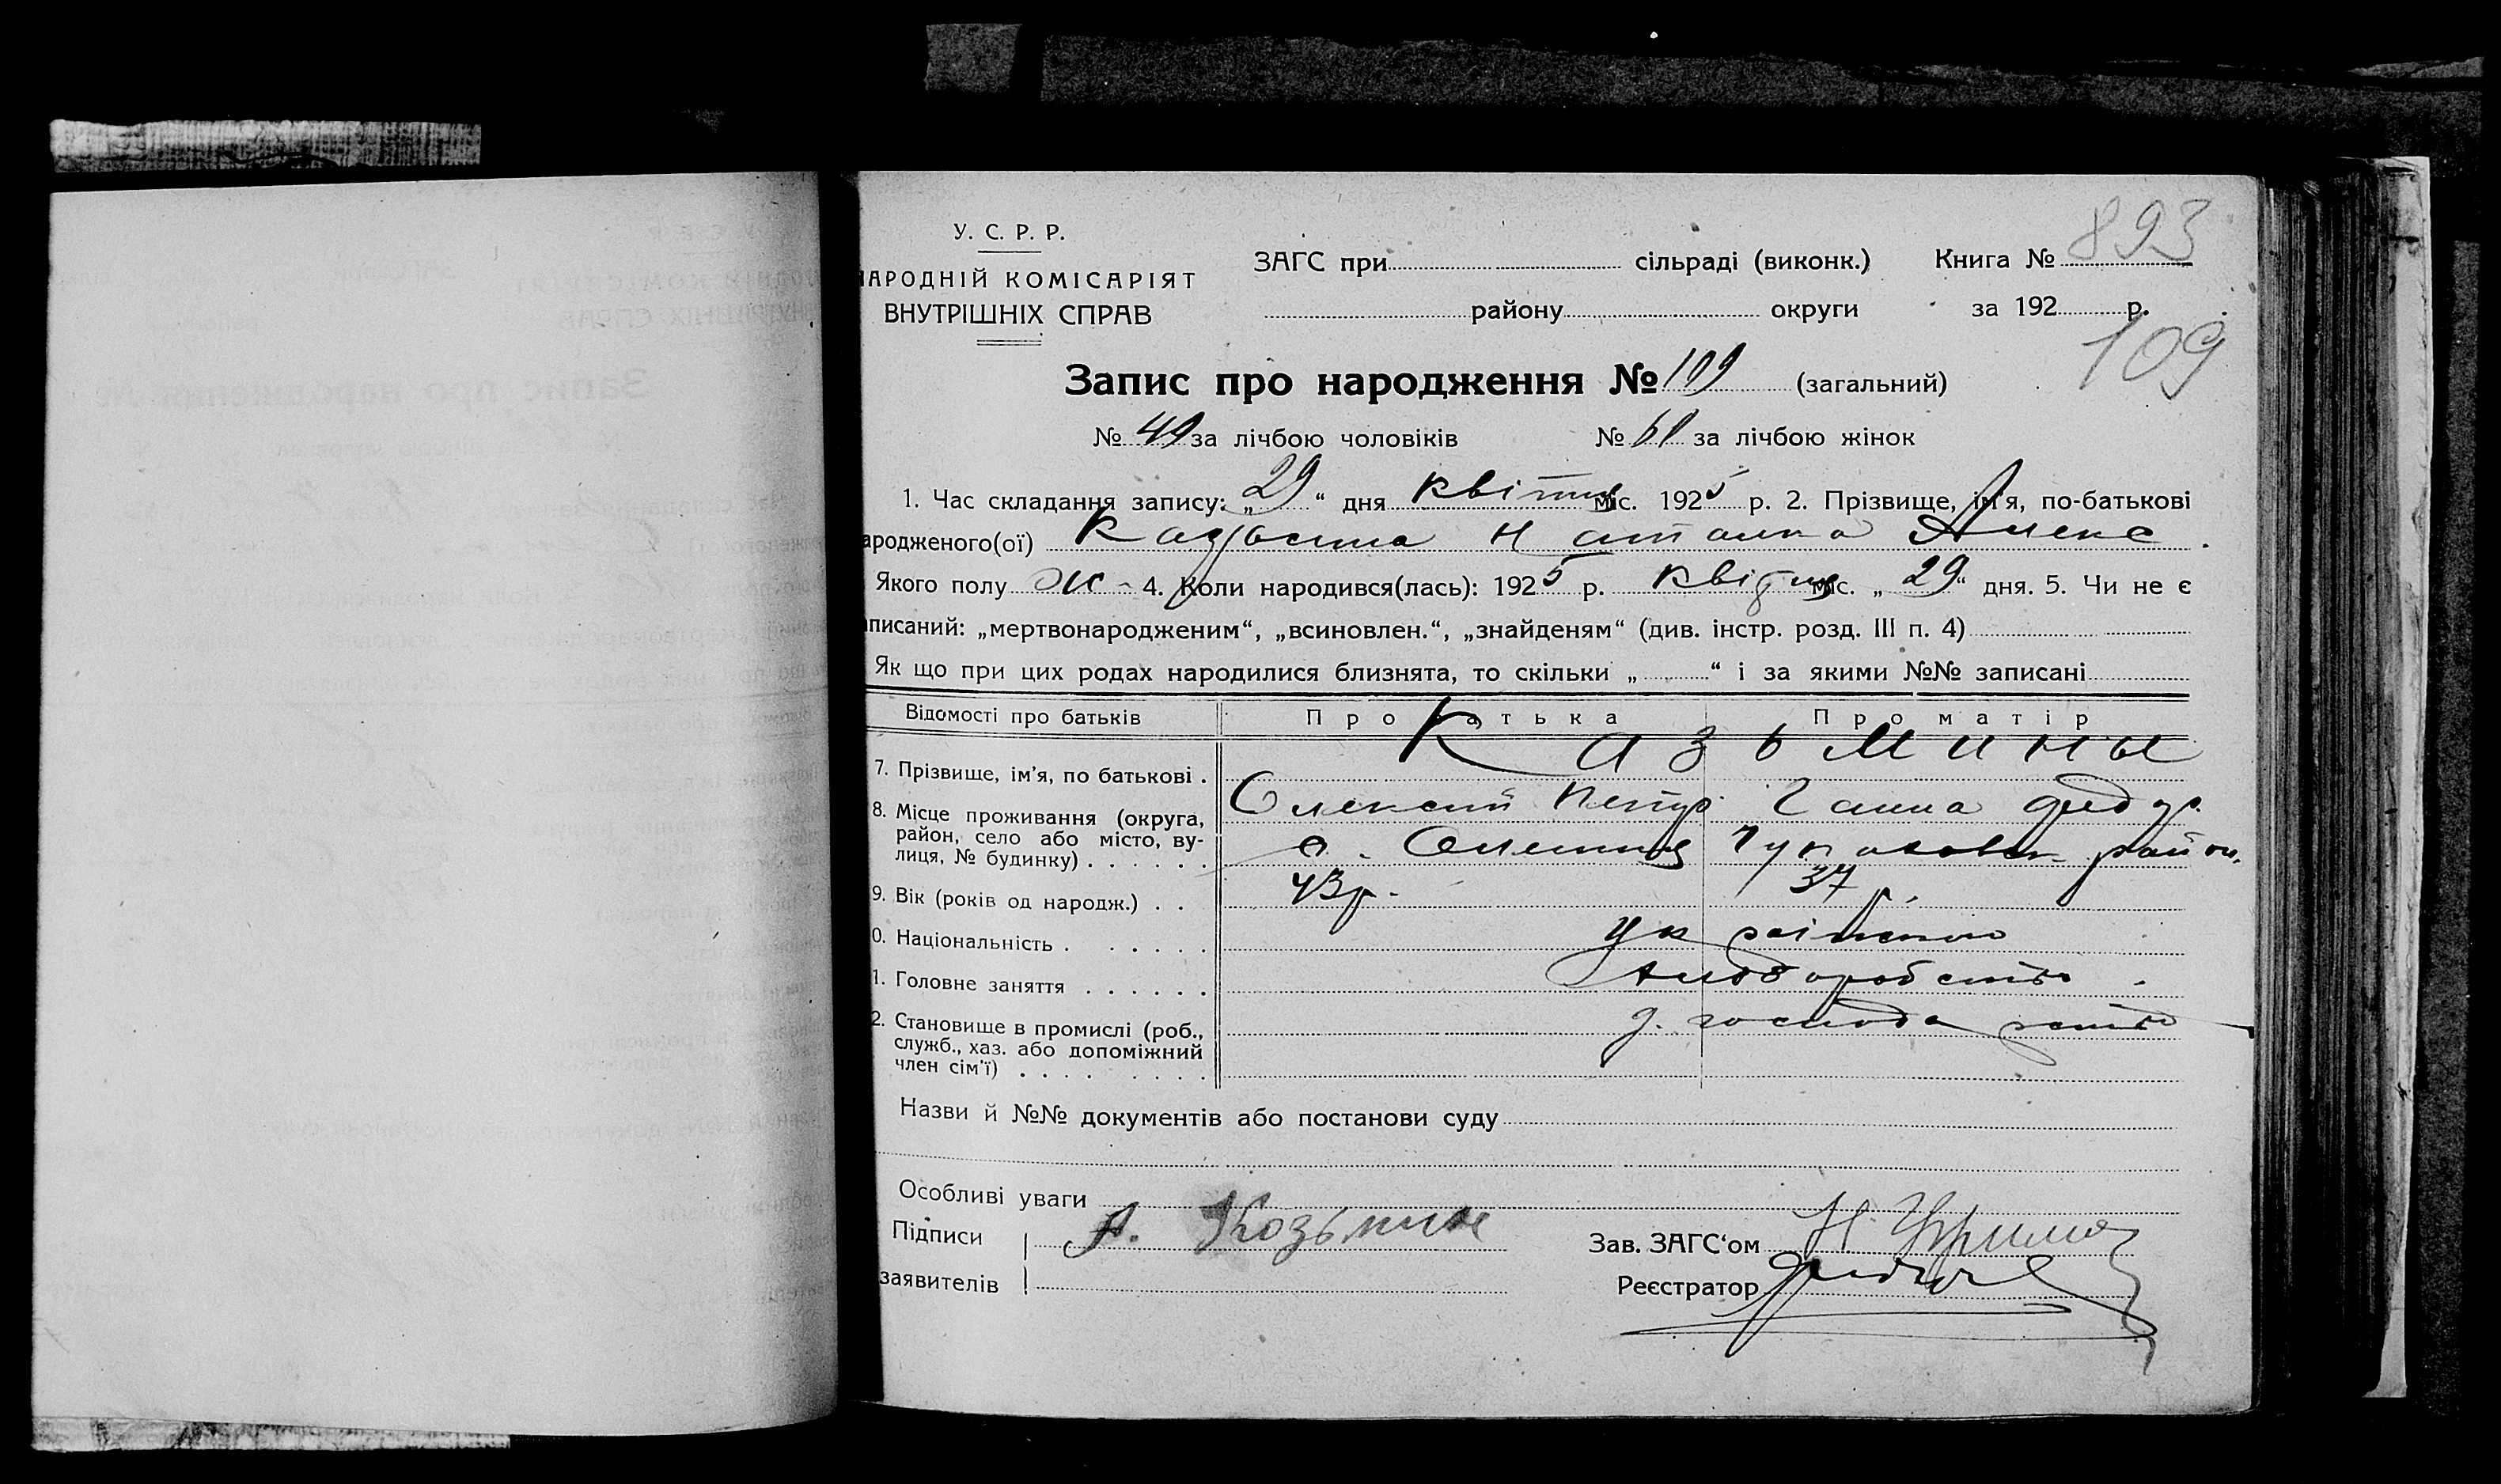 893
У. С. Р. Р.
ЗАГС при сільраді (виконк.) Книга №
АРОДНІЙ КОМІСАРІЯТ
району округи за 192 р.
ВНУТРІШНІХ СПРАВ
109
Запис про народження № 109 (загальний)
№ 49 за лічбою чоловіків № 61 за лічбою жінок
1. Час складання запису: „29“ дня квітня міс. 1925 р. 2. Прізвище, ім'я, по-батькові
ародженого(ої) Наталка Алекс
Якого полу ж - 4. Коли народився(лась): 1925 р. квітня міс. „29“ дня. 5. Чи не є
писаний: „мертвонародженим“, „всиновлен.“, „знайденям“ (див. інстр. розд. III п. 4)
Як що при цих родах народилися близнята, то скільки „ “ і за якими №№ записані
Відомості про батьків Про батька Про матір
Казьмины
7. Прізвище, ім'я, по батькові . Олексий Петр Ганна Федор.
8. Місце проживання (округа,
район, село або місто, ву-
лиця, № будинку) . . . . . . район.
9. Вік (років од народж.) . . 43 р. 37 р.
0. Національність . . . . . . українською
1. Головне заняття . . . . . . хлiборобство
2. Становище в промислі (роб.,
служб., хаз. або допоміжний
член сім'ї) . . . . . . . .
Назви й №№ документів або постанови суду
Особливі уваги
Підписи А. Козьмин Зав. ЗАГС‘ом Н.
заявителів Реєстратор